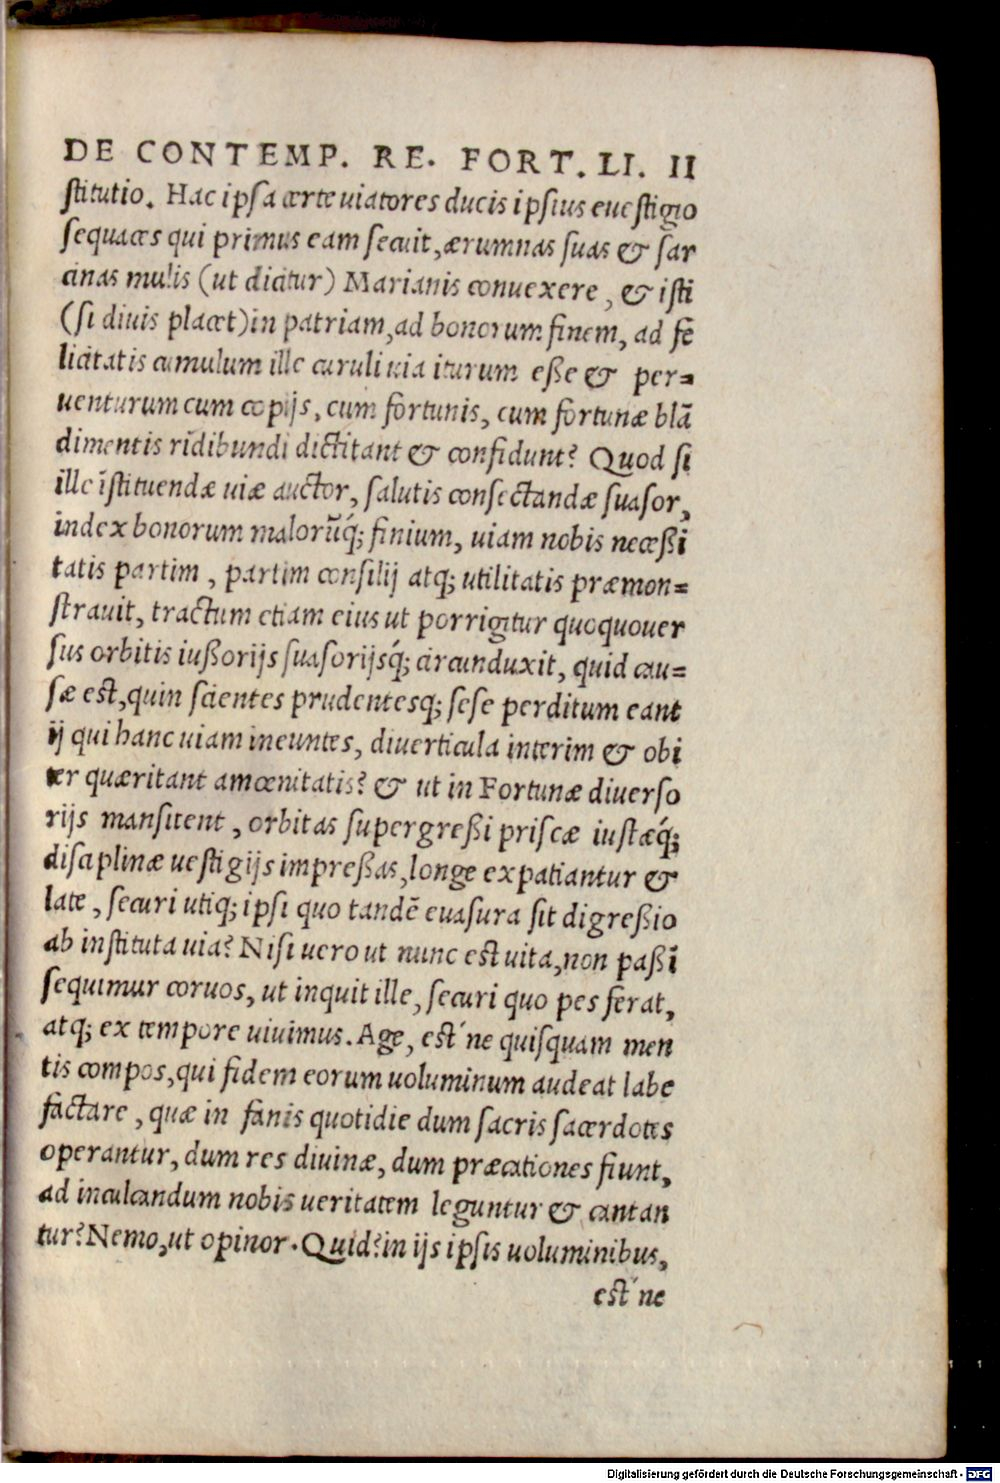 DE CONTEMP. RE. FORT. LI. II
ſtitutio. Hac ipſa certe uiatores ducis ipſius eueſtigio
ſequaces qui primus eam ſecuit, ærumnas ſuas & ſar
cinas mulis (ut dicitur) Marianis conuexere, & iſti
(ſi diuis placet) in patriam, ad bonorum finem, ad fe
licitatis cumulum ille curuli uia iturum eße & per=
uenturum cum copijs, cum fortunis, cum fortunæ blā
dimentis ridibundi dictitant & confidunt? Quod ſi
ille īſtituendæ uiæ auctor, ſalutis conſectandæ ſuaſor,
index bonorum malorūq́; finium, uiam nobis neceßi
tatis partim, partim conſilij atq; utilitatis præmon=
ſtrauit, tractum etiam eius ut porrigitur quoquouer
ſus orbitis iußorijs ſuaſorijsq́; circunduxit, quid cau=
ſæ eſt, quin ſcientes prudentesq; ſeſe perditum eant
ij qui hanc uiam ineuntes, diuerticula interim & obi
ter quæritant amœnitatis? & ut in Fortunæ diuerſo
rijs manſitent, orbitas ſupergreßi priſcæ iuſtæq́;
diſciplinæ ueſtigijs impreßas, longe expatiantur &
late, ſecuri utiq; ipſi quo tandē euaſura ſit digreßio
ab inſtituta uia? Niſi uero ut nunc eſt uita, non paßī
ſequimur coruos, ut inquit ille, ſecuri quo pes ferat,
atq; ex tempore uiuimus. Age, eſt´ne quiſquam men
tis compos, qui fidem eorum uoluminum audeat labe
factare, quæ in fanis quotidie dum ſacris ſacerdotes
operantur, dum res diuinæ, dum præcationes fiunt,
ad inculcandum nobis ueritatem leguntur & cantan
tur? Nemo, ut opinor. Quid? in ijs ipſis uoluminibus,
eſt´ne
Digitalisierung gefördert durch die Deutsche Forschungsgemeinschaft - DFG